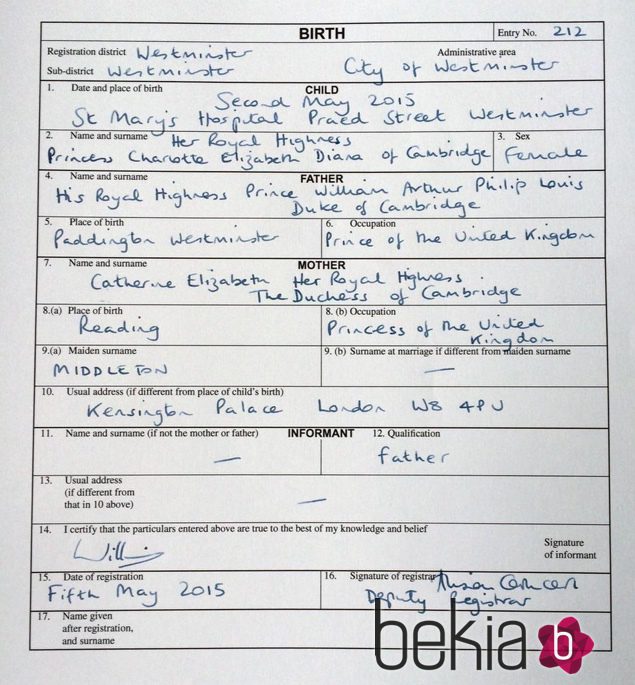 BIRTH Entry No. 212
Registration district Westminster Administrative area
Sub-district Westminster City of Westminster
1. Date and place of birth CHILD
Second May 2015
St Mary's Hospital Praed Street Westminster
2. Name and surname Her Royal Highness 3. Sex
Princess Charlotte Elizabeth Diana of Cambridge Female
4. Name and surname FATHER
His Royal Highness Prince William Arthur Philip Louis
Duke of Cambridge
5. Place of birth 6. Occupation
Paddington Westminster Prince of the United Kingdom
7. Name and surname MOTHER
Catherine Elizabeth Her Royal Highness
The Duchess of Cambridge
8.(a) Place of birth 8. (b) Occupation
Reading Princess of the United
Kingdom
9.(a) Maiden surname 9. (b) Surname at marriage if different from maiden surname
MIDDLETON —
10. Usual address (if different from place of child's birth)
Kensington Palace London W8 4PU
11. Name and surname (if not the mother or father) INFORMANT 12. Qualification
— Father
13. Usual address
(if different from
that in 10 above) —
14. I certify that the particulars entered above are true to the best of my knowledge and belief
Signature
of informant
15. Date of registration 16. Signature of registrar
Fifth May 2015 Deputy Registrar
17. Name given
after registration,
and surname
bekia b